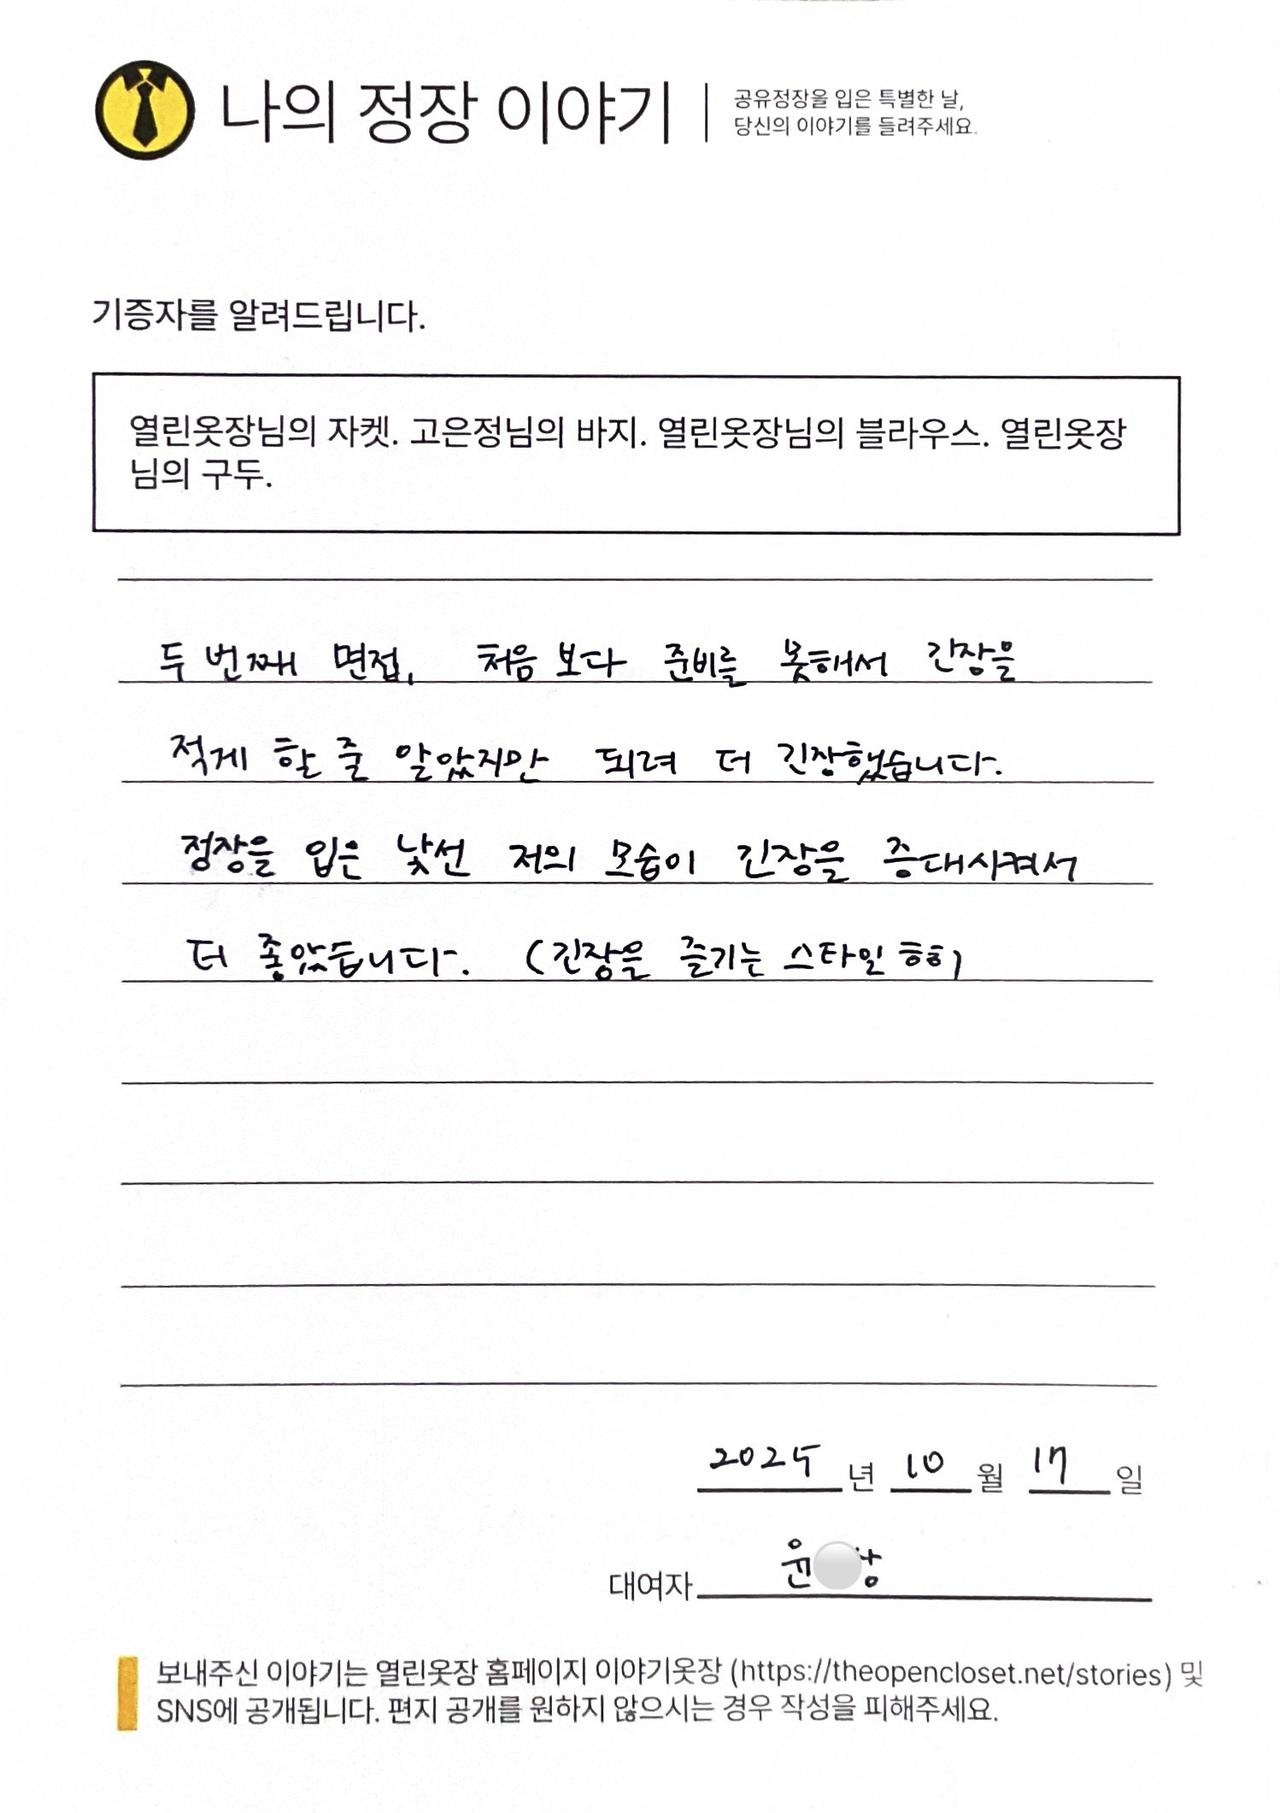 나의 정장 이야기
공유정장을 입은 특별한 날,
당신의 이야기를 들려주세요.
기증자를 알려드립니다.
열린옷장님의 자켓. 고은정님의 바지. 열린옷장님의 블라우스. 열린옷장
님의 구두.
두 번째 면접, 처음 보다 준비를 못해서 긴장을
적게 할 줄 알았지만 되려 더 긴장했습니다.
정장을 입은 낯선 저의 모습이 긴장을 증대시켜서
더 좋았습니다. (긴장을 즐기는 스타일 ㅎㅎ)
2025 년 10 월 17 일
대여자 윤
보내주신 이야기는 열린옷장 홈페이지 이야기옷장 (https://theopencloset.net/stories) 및
SNS에 공개됩니다. 편지 공개를 원하지 않으시는 경우 작성을 피해주세요.